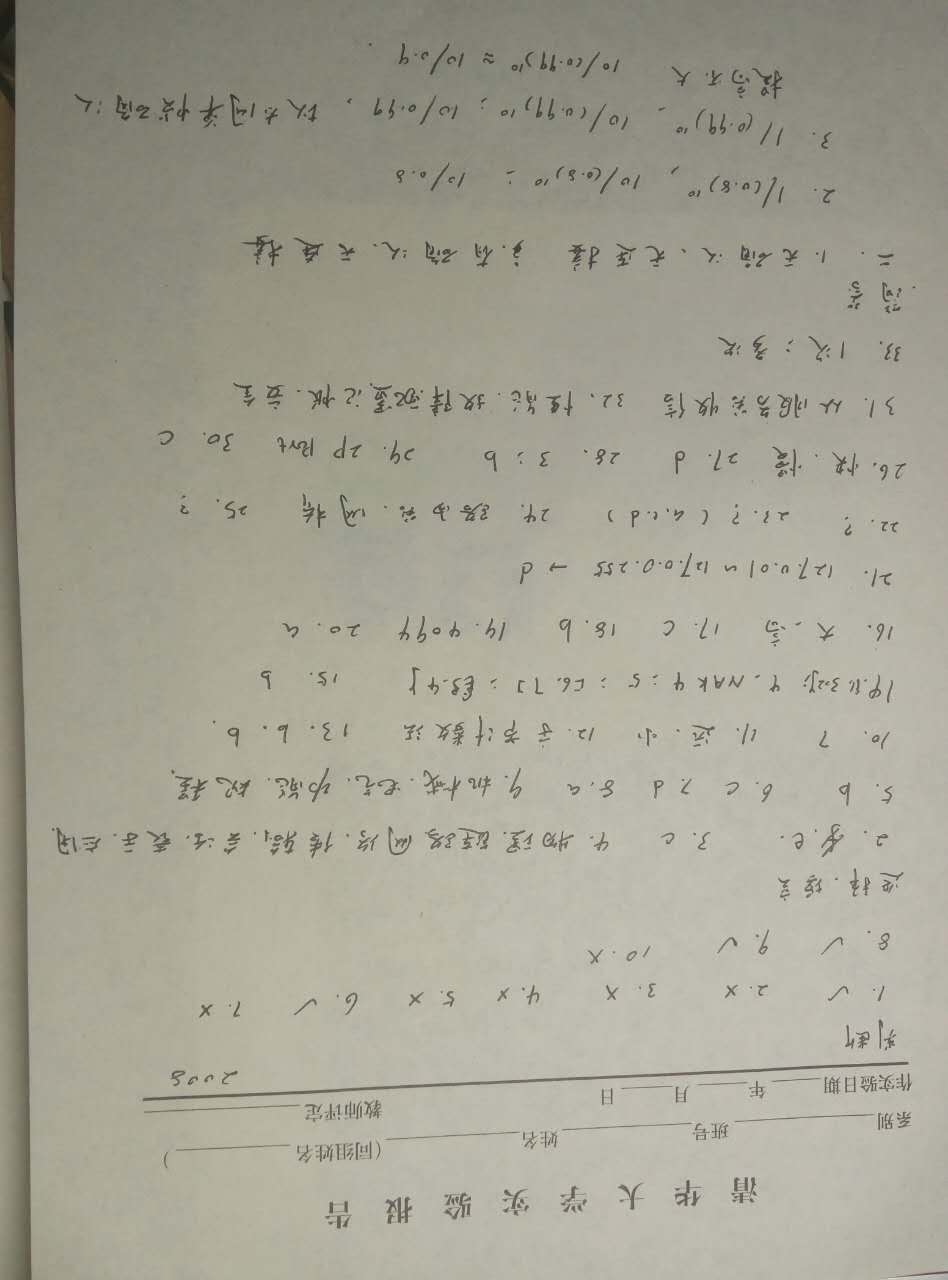 清华大学实验报告
系别 班号 姓名 (同组姓名 )
作实验日期 年 月 日 教师评定
2008
判断
1. ✓ 2. × 3. × 4. × 5. × 6. ✓ 7. ×
8. ✓ 9. ✓ 10. ×
选择.填空
2. e. 3. c 4. 物理.链路.网络.传输.会话.表示.应用
5. b 6. c 7. d 8. a 9. 机械.电气.功能.规程
10. 7 11. 远.小 12. 字节计数法 13. b. b. b.
14. 4. NAK4; 5; [6.7]; 15. b
16. 大.高 17. c 18. b 19. 4094 20. a
21. 127.0.0.1 ~ 127.0.0.255 → d
22. ? 23. ? (a.c.d) 24. 路由器.网桥 25. ?
26. 快.慢 27. d 28. 3; b 29. 2p Port 30. c
31. 从服务器收信 32. 性能.故障.配置.记帐.安全
33. 1次; 多次
问答
二. 1. 无确认.无连接 有确认.无连接
2. 1/(0.8)¹⁰, 10/(0.8)¹⁰; 10/0.8
3. 1/(0.99)¹⁰, 10/(0.99)¹⁰; 10/0.99, 以太网单帧确认
提高不大 10/(0.99)¹⁰ ≈ 10/0.9